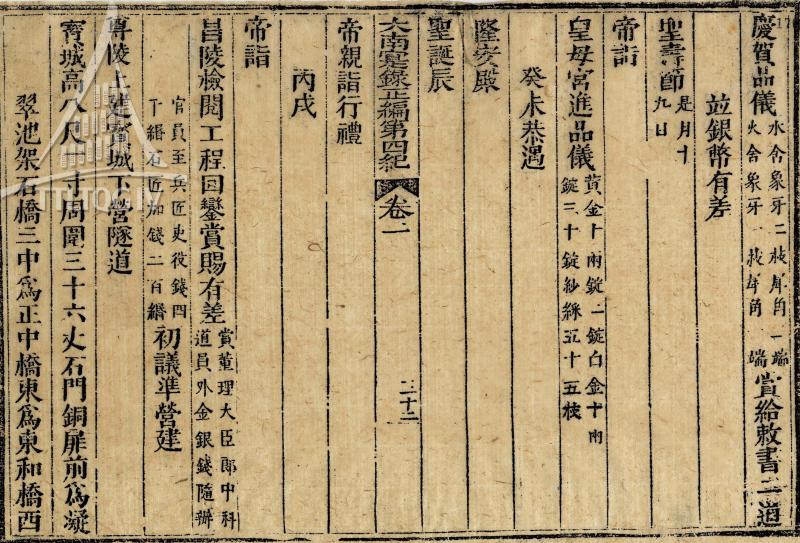 慶賀品儀水舍象牙二枝犀角一端火舍象牙一枝犀角一端賞給敕書二道
並銀幣有差
聖壽節是月十九日
帝詣
皇母宮進品儀黃金十兩錠二錠白金十兩錠三十錠紗綵五十五枝
癸未恭遇
隆安殿
聖誕辰
大南寔錄正編第四紀 卷一 三十二
帝親詣行禮
丙戌
帝詣
昌陵檢閱工程回鑾賞賜有差賞董理大臣郎中科道員外金銀錢隨辦
官員至兵匠吏役錢四千緡石匠加錢二百緡初議準營建
尊陵上建寶城下營隧道
寶城高八尺 寸周圍三十六丈石門銅扉前爲凝
翠池架石橋三中爲正中橋東爲東和橋西